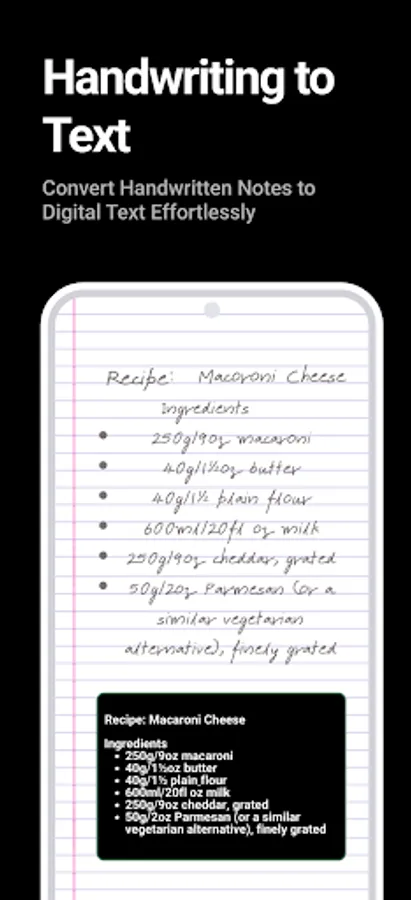 Handwriting to
Text
Convert Handwritten Notes to
Digital Text Effortlessly
Recipe: Macoroni Cheese
Ingredients
• 250g/9oz macaroni
• 40g/1½oz butter
• 40g/1½ plain flour
• 600ml/20fl oz milk
• 250g/9oz cheddar, grated
• 50g/2oz Parmesan (or a
similar vegetarian
alternative), finely grated
Recipe: Macaroni Cheese
Ingredients
• 250g/9oz macaroni
• 40g/1½oz butter
• 40g/1½ plain flour
• 600ml/20fl oz milk
• 250g/9oz cheddar, grated
• 50g/2oz Parmesan (or a similar
vegetarian alternative), finely grated